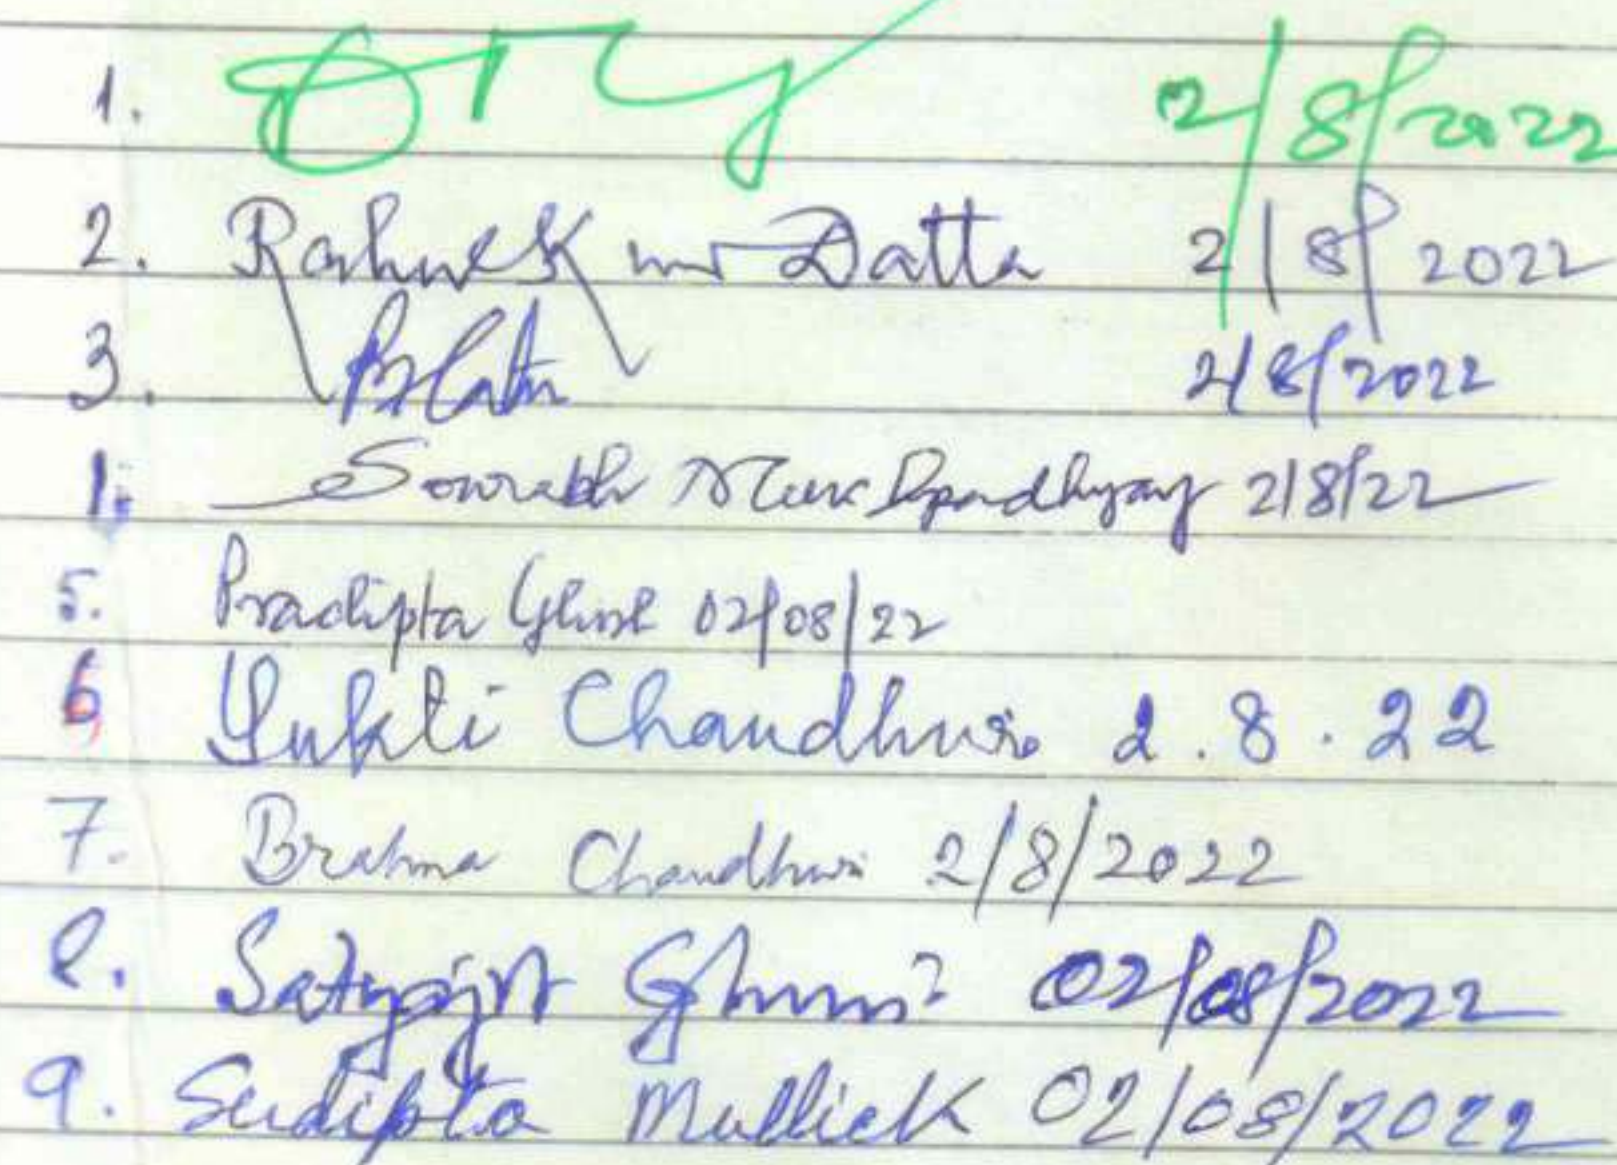 1. 2/8/2022
2. Datta 2/8/2022
3. 2/8/2022
1. Sourabh 2/8/22
5. Pradipta Ghosh 02/08/22
6 Yukti Chaudhuri 2.8.22
7. Brahma Chaudhuri 2/8/2022
8. Satyajit 02/08/2022
9. Sudipta Mullick 02/08/2022